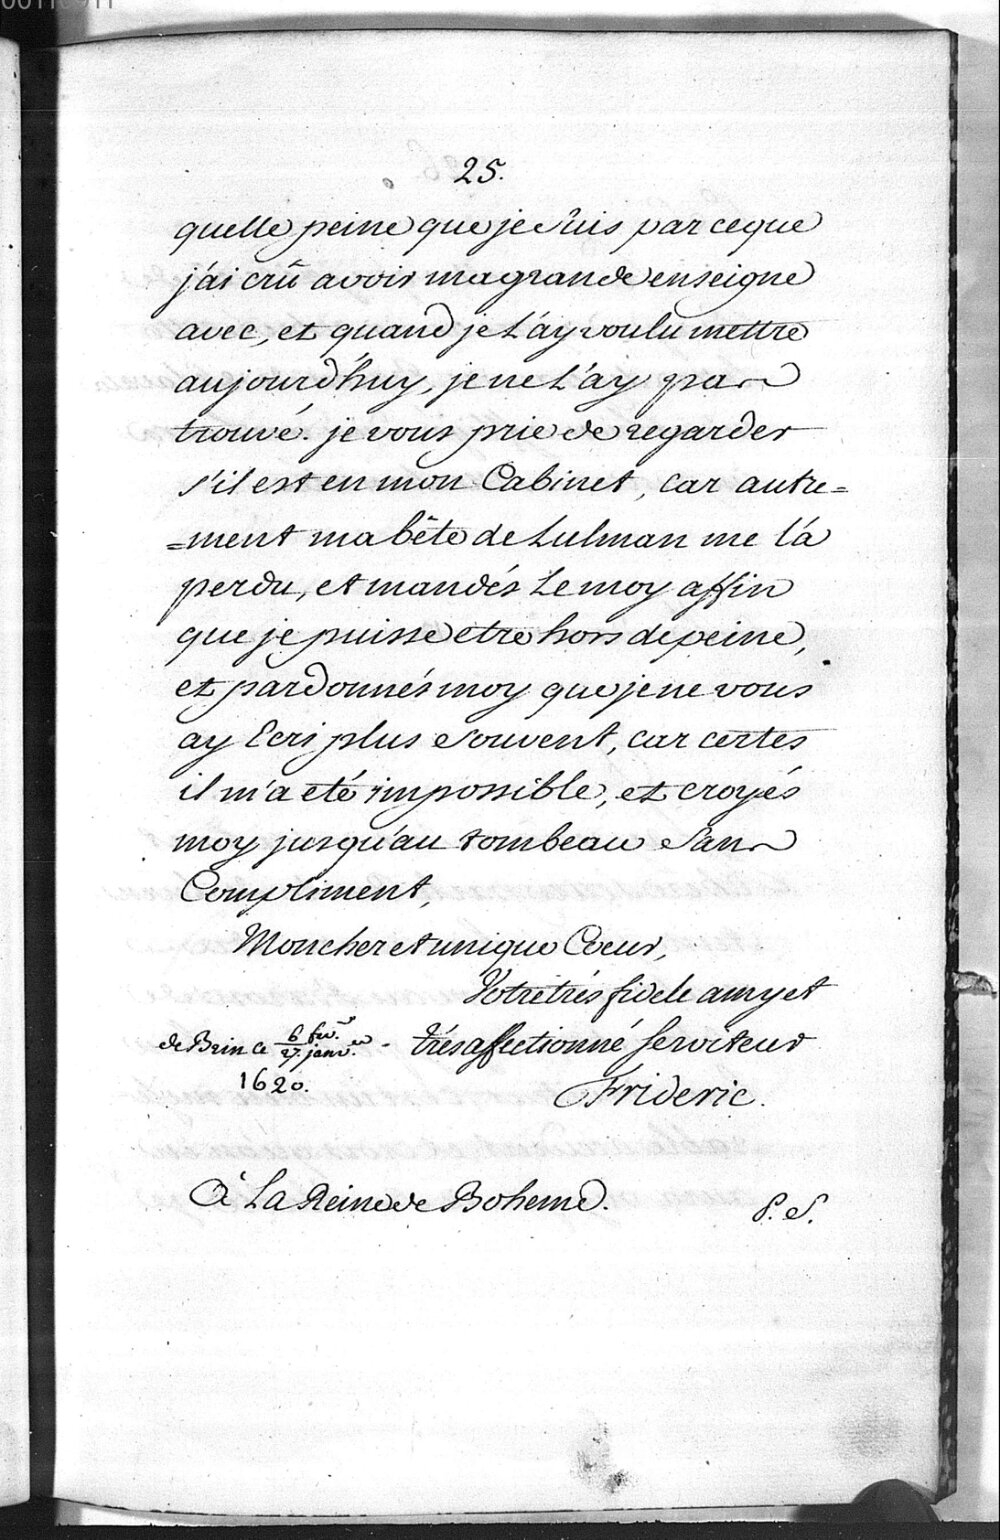 25.
quelle peine que je suis par ce que
j'ai crû avoir ma grande enseigne
avec, et quand je L'ay voulu mettre
aujourd'huy, je ne L'ay pas
trouvé. je vous prie de regarder
s'il est en mon Cabinet, car autre=
=ment ma bête de Lulman me l'a
perdu, et mandés Le moy affin
que je puisse etre hors de peine,
et pardonnés moy que je ne vous
ay Ecri plus souvent, car certes
il m'a eté impossible, et croyés
moy jusqu'au tombeau sans
Compliment,
Mon cher et unique Coeur,
Votre trés fidele amy et
de Brin ce 6 fev.r / 27. janv.er - trés affectionné serviteur
1620.
Frideric.
à La Reine de Boheme.
P. S.